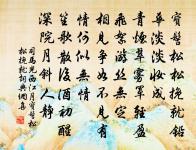 寶髻松松挽就鉛
華淡淡妝成
青煙翠霧罩輕盈
飛絮游絲無定
相見爭如不見有
情何似無情
笙歌散後酒初醒
深院月斜人靜
司馬光西江月寶髻松
松挽就詞典網喜